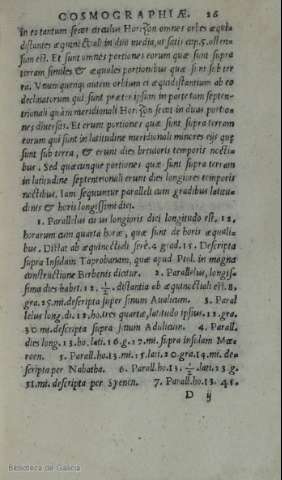 COSMOGRAPHIÆ. 26
In eo tantum secat circulus Horizon omnes orbes æqui-
distantes æquinoctiali in duo media, ut satis cap. 5. osten-
sum est. Et sunt omnes portiones eorum quæ sunt supra
terram similes & æquales portionibus quæ sunt sub ter
ra. Unumquenq; autem orbium ei æquidistantium ab eo
declinatorum qui sunt præter ipsum in parte tam septen-
trionali quàm meridionali Horizon secat in duas portio-
nes diuersas. Et erunt portiones quæ sunt supra terram
eorum qui sunt in latitudine meridionali minores eis quę
sunt sub terra, & erunt dies breuioris temporis nocti-
bus. Sed quæcunque portiones quæ sunt supra terram
in latitudine septentrionali erunt dies longiores temporis
noctibus. Iam sequuntur paralleli cum gradibus latitu-
dinis & horis longissimi diei.
1. Parallelus cuius longioris diei longitudo est, 12,
horarum cum quarta horæ, quæ sunt de horis æquali-
bus. Distat ab æquinoctiali ferè. 4. grad. 15. Descripta
supra Insulam Taprobanam, quæ apud Ptol. in magna
constructione Berbenis dicitur. 2. Parallelus, longis-
sima dies habet. 12. ½. distantia ab æquinoctiali est. 8.
gra. 25. mi. descripta super sinum Aualicum. 3. Paral
lelus long. di. 12. ho. tres quartæ, latitudo ipsius. 12. gra.
30 mi. descripta supra sinum Adulicum. 4. Parall.
dies long. 13. ho. lati. 16. g. 27. mi. supra insulam Mæ-
roen. 5. Parall. ho. 13. mi. 15. lati. 20. gra. 14. mi. de-
scripta per Nabatha. 6. Parall. ho. 13. ½. lati. 23. g.
51. mi. descripta per Syenen. 7. Parall. ho. 13. 45.
D ij
Biblioteca de Galicia